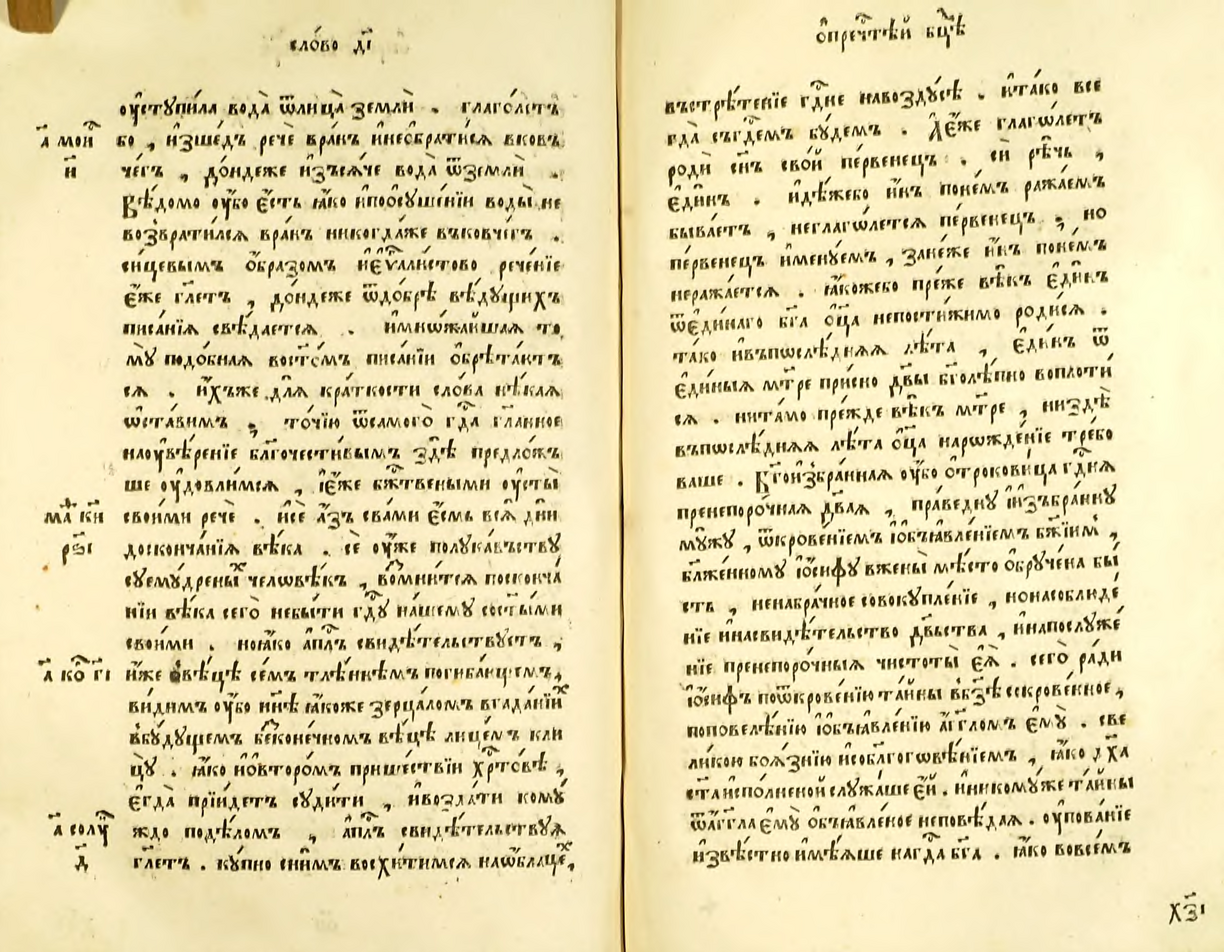 сло́во д҃і
ᲂу҆стꙋпи́ла вода̀ ѿлица̀ землѝ . глаго́летъ
а҃ мои
бо , и҆зше́дъ речѐ вра́нъ и҆необрати́сѧ вков
и҃
че́гъ , до́ндеже и҆зъсѧ́че вода̀ ѿземлѝ .
Вѣ́домо ᲂу҆́бо є҆́сть ꙗ҆́ко ипоѡсꙋше́нїи воды̀ не
возврати́лсѧ вра́нъ никогда́же въковче́гъ .
си́цевымъ ѻ҆́бразомъ и҆є҆ѵⷢ҇али́стово рече́нїе
є҆́же гл҃етъ , до́ндеже ѿдобрѣ̀ вѣ́дꙋщихъ
писа́нїѧ свѣ́даетсѧ . и҆мнѡ́жайшаѧ то
мꙋ̀ подо́бнаѧ восто́мъ писа́нїи ѡ҆брѣта́ютъ
сѧ . и҆́хъже для̀ кра́ткости сло́ва нѣ́каѧ
ѡ҆ста́вимъ , то́чїю ѿсамого̀ гдⷭ҇а гл҃анное
наᲂувѣре́нїе бл҃гочести́вымъ здѣ̀ предло́жъ
ше ᲂу҆довли́мсѧ , і҆є҆́же бжⷭ҇твеными ᲂу҆сты̀
свои́ми речѐ . и҆сѐ а҆́зъ сва́ми є҆́смь всѧ̀ дни̑
ма҃ к҃и
доскончáнїѧ вѣ́ка . сѐ ᲂу҆́же полꙋка́въствꙋ
сꙋемꙋ́дреныⷯ человѣ́къ , во́мнитсѧ посконча́
нїи вѣ́ка сего̀ небы́ти гдⷭ҇ꙋ на́шемꙋ состы́ми
свои́ми . ноꙗ҆́ко а҆пл҃ъ свидѣ́тельствꙋетъ ,
а҃ ко гі
и҆́же ввѣ́цѣ се́мъ тлѣ́ннѣмъ погиба́ющемъ ,
ви́димъ ᲂу҆́бо нн҃ѣ ꙗ҆́коже зерца́ломъ вгада́нїиⷯ
вбꙋ́дꙋщемъ безконе́чномъ вѣ́цѣ лице́мъ кли
цꙋ̀ . ꙗ҆́ко и҆ѡвторо́мъ прише́ствїи хрⷭ҇то́вѣ ,
є҆гда̀ прїи́детъ сꙋди́ти , и҆возда́ти комꙋ́
а҃ солꙋ
ждо подѣло́мъ , а҆пл҃ъ свидѣ́тельствꙋѧ
д҃
гл҃етъ . кꙋ́пно сни́мъ восхи́тимсѧ наѻ҆́блацеⷯ ,
ѡ҆пречⷭ҇тѣй бц҃ѣ
въстрѣ́тенїе гдⷭ҇не навоздꙋ́сѣ . и҆та́ко все
гда̀ съгдⷭ҇емъ бꙋ́демъ . А҆є҆́же глаго́летъ
родѝ сн҃ъ сво́й пе́рвенецъ . си̑ рѣ́чь ,
є҆ди́нъ . и҆дѣ́жебо и҆́нъ поне́мъ ража́емъ
быва́етъ , неглаго́летсѧ пе́рвенецъ , но
пе́рвенецъ и҆менꙋ́емъ , зане́же и҆́нъ поне́мъ
неража́етсѧ . ꙗ҆́кожебо пре́же вѣ́къ є҆ди́нъ
ѿє҆ди́наго бг҃а ѻ҆ц҃а̀ непости́жимо роди́сѧ .
та́ко ивъпослѣ́днѧѧ лѣ́та , є҆ди́нъ ѿ
є҆ди́ныѧ мт҃ре при́сно двⷭ҇ы бг҃олѣ́пно воплоти́
сѧ . нита́мо пре́жде вѣ́къ мт҃ре , низдѣ̀
въпослѣ́днѧѧ лѣ́та ѻ҆ц҃а̀ нарожде́нїе тре́бо
ваше . Бг҃оизбра́ннаѧ ᲂу҆́бо ѻ҆трокови́ца гдⷭ҇нѧ
пренепоро́чнаѧ двⷭ҇аѧ , пра́веднꙋ і҆и҆зъбра́ннꙋ
мꙋ́жꙋ , ѿкрове́нїемъ і҆ѡбъѧвле́нїемъ бж҃їимъ ,
блаже́нномꙋ і҆ѡ́сифꙋ вжены̀ мѣ́сто ѡ҆брꙋ́чена бы́
сть , ненабра́чное совокꙋпле́нїе , нонасоблюде́
нїе и҆насвидѣ́тельство двⷭ҇ьства , и҆напослꙋже́
нїе пренепоро́чныѧ чистоты̀ є҆ѧ̀ . сего̀ ра́ди
і҆ѡ́сифъ поѿкрове́нїю та́йны вбз҃ѣ сокрове́нное ,
поповелѣ́нїю і҆ѡбъѧвле́нїю а҆́гг҃ломъ є҆мꙋ̀ . све
ли́кою боѧ́знїю и҆соблагоговѣ́нїемъ , ꙗ҆́ко дх҃а
ст҃а и҆спо́лненой слꙋжа́ше є҆́й . и҆никомꙋ́же та́йны
ѿа҆́гг҃ла є҆мꙋ̀ ѡ҆бъѧвле́ное неповѣ́даѧ . ᲂу҆пова́нїе
и҆звѣ́стно и҆мѣ́ѧше нагдⷭ҇а бг҃а . ꙗ҆́ко вовсе́мъ
хз҃і